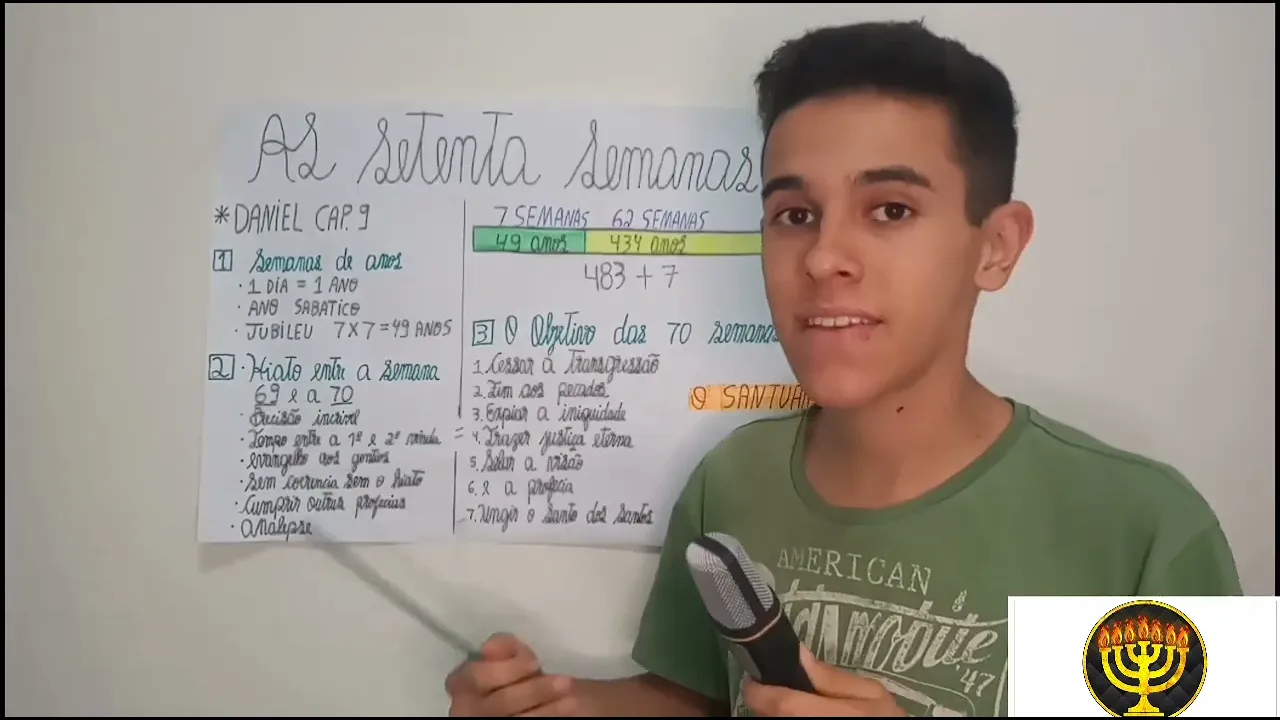 As setenta semanas
* DANIEL CAP. 9
1 Semanas de anos
· 1 DIA = 1 ANO
· ANO SABATICO
· JUBILEU 7X7 = 49 ANOS
2 · Hiato entre a semana
69 e a 70
· Decisão incrivel
· Tempo entre a 1ª e 2ª vinda =
· evangelho aos gentios
· Sem coerencia sem o hiato
· Cumprir outras profecias
· Analepse
7 SEMANAS 62 SEMANAS
49 anos 434 anos
483 + 7
3 O Objetivo das 70 semanas
1. Cessar a transgressão
2. Fim aos pecados
3. Expiar a iniquidade
4. Trazer justiça eterna
5. Selar a visão
6. e a profecia
7. Ungir o Santo dos Santos
O SANTUÁ
AMERICAN
'47